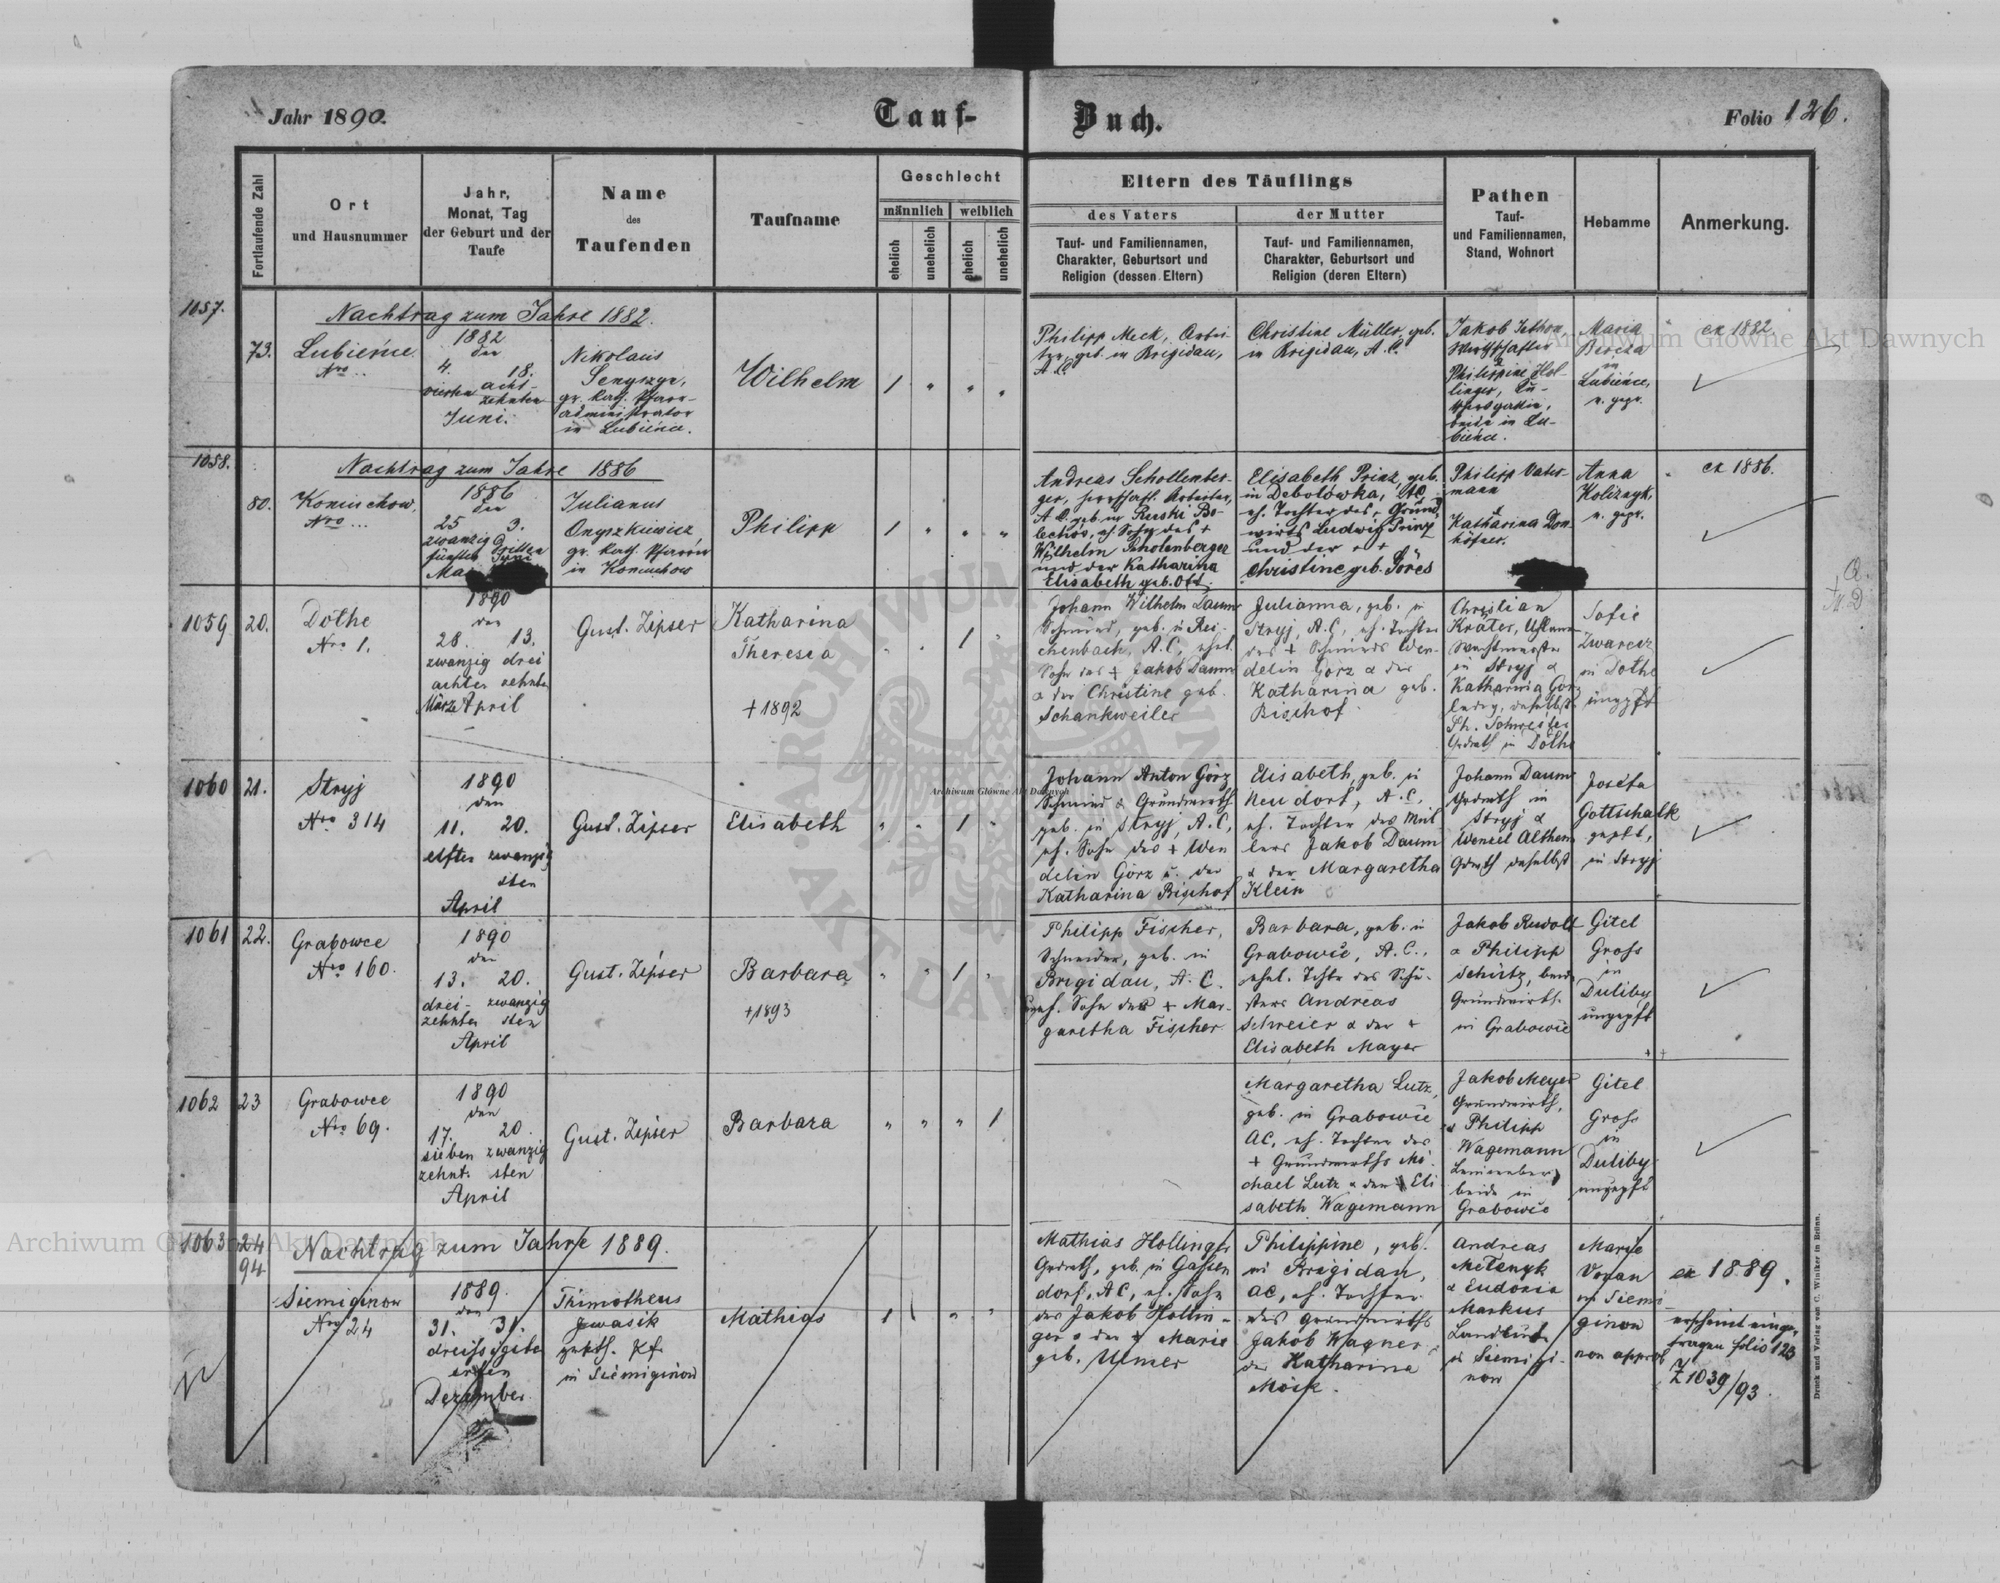 Jahr 1890.
Tauf-
Buch.
Folio 126.
Fortlaufende Zahl
Ort
und Hausnummer
Jahr,
Monat, Tag
der Geburt und der
Taufe
Name
des
Taufenden
Taufname
Geschlecht
männlich
weiblich
ehelich
unehelich
ehelich
unehelich
Eltern des Täuflings
des Vaters
Tauf- und Familiennamen,
Charakter, Geburtsort und
Religion (dessen Eltern)
der Mutter
Tauf- und Familiennamen,
Charakter, Geburtsort und
Religion (deren Eltern)
Pathen
Tauf-
und Familiennamen,
Stand, Wohnort
Hebamme
Anmerkung.
1057.
Nachtrag zum Jahre 1882.
73.
Lubieńce
Nro ..
1882
den
4. 18.
vierten acht-
zehnten
Juni.
Nikolaus
gr. kath. Pfarr-
administrator
in Lubieńce.
Wilhelm
1 " " "
Philipp Meck, Arbei-
ter, geb. in Brigidau,
A.C.
Christine Müller, geb.
in Brigidau, A.C.
Jakob
&
Philippine Hol-
linger,
beide in Lu-
bieńce.
Maria
in
Lubieńce,
n. gepr.
ex 1882
1058.
Nachtrag zum Jahre 1886
80.
Koniuchow,
Nro ...
1886
den
25 3.
zwanzig dritten
fünften Juni
Mai
Julianus
Onyszkiewicz
gr. kath. Pfarrer
in Koniuchow
Philipp
1 " " "
Andreas Schollenber-
ger, herrschaftl. Arbeiter,
A.C. geb. in Ruski Bo-
lechów, eh. Sohn des +
Wilhelm Scholenberger
und der Katharina
Elisabeth geb. Ott.
Elisabeth Prinz, geb.
in Debolówka, AC,
eh. Tochter des + Grund-
wirts Ludwig Prinz
und der + +
Christine, geb. Söres
Philipp Vater-
mann
&
Katharina Don-
höfner.
Anna
n. gepr.
ex 1886.
1059
20.
Dothe
Nro 1.
1890
den
28. 13.
zwanzig drei
achten zehnten
März April
Gust. Zipser
Katharina
Theresia
+ 1892
" " 1 "
Johann Wilhelm Daum
Schmied, geb. in Rei-
chenbach, A.C., ehel.
Sohn des + Jakob Daum
& der Christine geb.
Schankweiler
Julianna, geb. in
Stryj, A.C., eh. Tochter
des + Schmieds Wen-
delin Gorz & der
Katharina geb.
Bischof
Christian
Krater,
in Stryj &
Katharina Gorz
ledig, daselbst
in Dothe
Sofie
Zwarcz
in Dothe
ungepft
1060
21.
Stryj
Nro 314
1890
den
11. 20.
elften zwanzig
sten
April
Gust. Zipser
Elisabeth
" " 1 "
Johann Anton Görz
Schmied & Grundwirth
geb. in Stryj, A.C.,
eh. Sohn des + Wen
delin Görz u. der
Katharina Bischof
Elisabeth, geb. in
Neudorf, A.C.,
eh. Tochter des Mül
lers Jakob Daum
& der Margaretha
Klein
Johann Daum
Grdwth in
Stryj &
Wenzel Althen
Grdwth daselbst
Josefa
Gottschalk
gepft,
in Stryj
1061
22.
Grabowce
Nro 160.
1890
den
13. 20.
drei- zwanzig
zehnten sten
April
Gust. Zipser
Barbara
+ 1893
" " 1 "
Philipp Fischer,
Schneider, geb. in
Brigidau, A.C.
uneh. Sohn der + Mar-
garetha Fischer
Barbara, geb. in
Grabowce, A.C.,
ehel. Tochter des Schu-
sters Andreas
Schreier & der +
Elisabeth Mayer
Jakob Rewolt
& Philipp
Schütz, beide
Grundwirth.
in Grabowce
Gitel
Gross
in
Duliby
ungepft
1062
23
Grabowce
Nro 69.
1890
den
17. 20.
sieben zwanzig
zehnt. sten
April
Gust. Zipser
Barbara
" " " 1
Margaretha Lutz,
geb. in Grabowce
AC, eh. Tochter des
+ Grundwirths Mi-
chael Lutz & der + Eli
sabeth Wagemann
Jakob Meyer
Grundwirth,
& Philipp
Wagemann
beide in
Grabowce
Gitel
Gross
in
Duliby
ungepft
1063
24
94
Nachtrag zum Jahre 1889.
Siemiginow
Nro 24
1889.
den
31. 31.
dreissigsten
ersten
Dezember
Thimotheus
Jwasik
gr. kth. Pf.
in Siemiginow
Mathias
1 " " "
Mathias Hollinger
Grdwth, geb. in Gassen
dorf, AC, eh. Sohn
des Jakob Hollin-
ger & der + Marie
geb. Ulmer
Philippine, geb.
in Brigidau,
AC, eh. Tochter
des Grundwirths
Jakob Wagner,
der Katharina
Möck.
Andreas
Metenyk
& Eudoxia
Markus
Landleute
in Siemigi-
now
Marie
in Siemi-
ginow
non approb
ex 1889.
erscheint einge-
tragen folio 123
Z 1039/93.
Druck und Verlag von C. Winiker in Brünn.
Archiwum Główne Akt Dawnych
Archiwum Główne Akt Dawnych
Archiwum Główne Akt Dawnych
ARCHIWUM GŁÓWNE AKT DAWNYCH